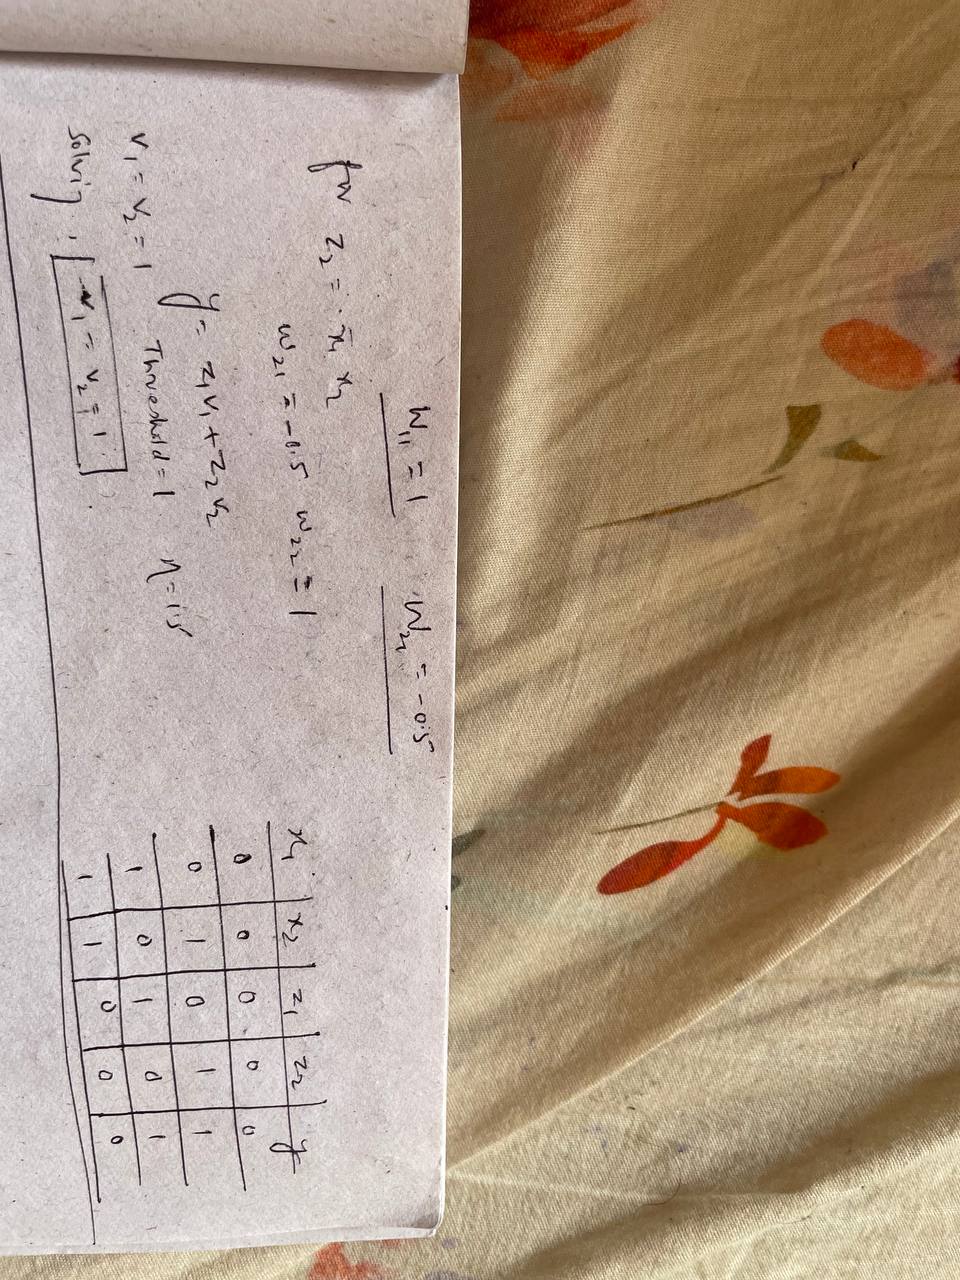 W₁₁ = 1 W₂₁ = -0.5
for z₂ = x̄₁ x₂
w₂₁ = -0.5 w₂₂ = 1
y = z₁v₁ + z₂v₂
v₁ = v₂ = 1 Threshold = 1 η = 1.5
Solving : v₁ = v₂ = 1
x₁ x₂ z₁ z₂ y
0 0 0 0 0
0 1 0 1 1
1 0 1 0 1
1 1 0 0 0